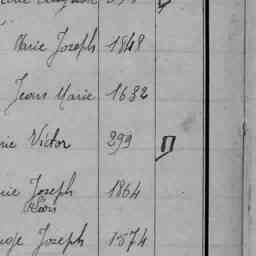 Marie Joseph 1848
Jean Marie 1632
rie Victor 299
rie Joseph 1864
Joseph 1874